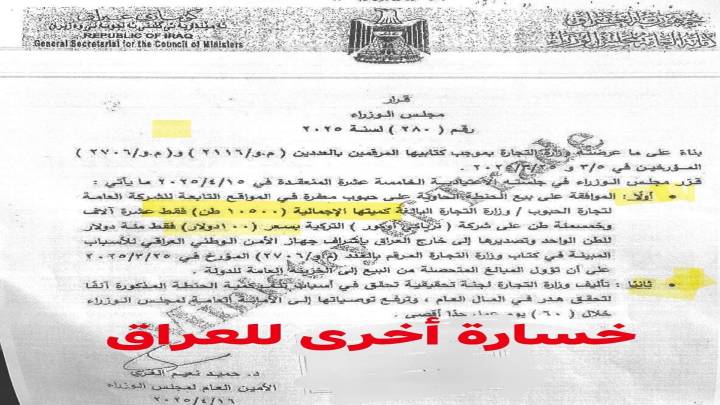 REPUBLIC OF IRAQ
General Secretariat for the Council of Ministers
قرار
مجلس الوزراء
رقم ( ٢٨٠ ) لسنة ٢٠٢٥
بناءً على ما عرضته وزارة التجارة بموجب كتابيها المرقمين بالعددين ( م.و/٢١١٦ ) و( م.و/٢٧٠٦ )
المؤرخين في ٣/٥ و ٢٠٢٥/٣/٢٥ .
قرّر مجلس الوزراء في جلسته الاعتيادية الخامسة عشرة المنعقدة في ٢٠٢٥/٤/١٥ ما يأتي :
أولاً: الموافقة على بيع الحنطة الحاوية على حبوب محفرة في المواقع التابعة للشركة العامة
لتجارة الحبوب / وزارة التجارة البالغة كميتها الإجمالية (١٠٥٠٠ طن) فقط عشرة آلاف
وخمسمئة طن على شركة ( أوكور ) التركية بسعر (١٠٠دولار) فقط مئة دولار
للطن الواحد وتصديرها إلى خارج العراق بإشراف جهاز الأمن الوطني العراقي للأسباب
المبينة في كتاب وزارة التجارة المرقم بالعدد (م.و/٢٧٠٦) المؤرخ في ٢٠٢٥/٣/٢٥
على أن تؤول المبالغ المتحصلة من البيع إلى الخزينة العامة للدولة .
ثانياً : تأليف وزارة التجارة لجنة تحقيقية تحقق في أسباب الحنطة المذكورة آنفاً
لتحقق هدر في المال العام ، وترفع توصياتها إلى الأمانة العامة لمجلس الوزراء
خلال ( ٦٠ ) يوم حداً أقصى .
Ministry of Trade
خسارة أخرى للعراق
د. حميد نعيم الغزي
الأمين العام لمجلس الوزراء
٢٠٢٥/٤/١٦